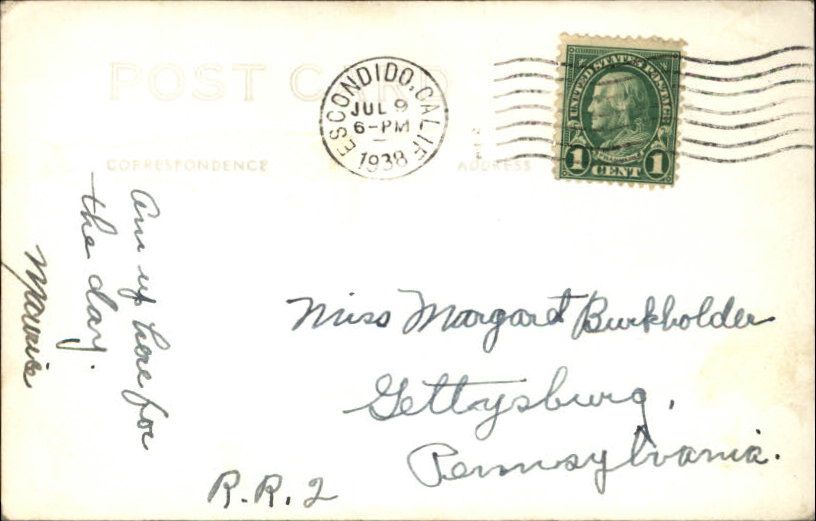 POST CARD
ESCONDIDO, CALIF.
JUL 9
6-PM
1938
UNITED STATES POSTAGE
FRANKLIN
1 CENT 1
CORRESPONDENCE
ADDRESS
Am up here for
the day.
Maurice
Miss Margaret Burkholder
Gettysburg,
Pennsylvania.
R.R. 2